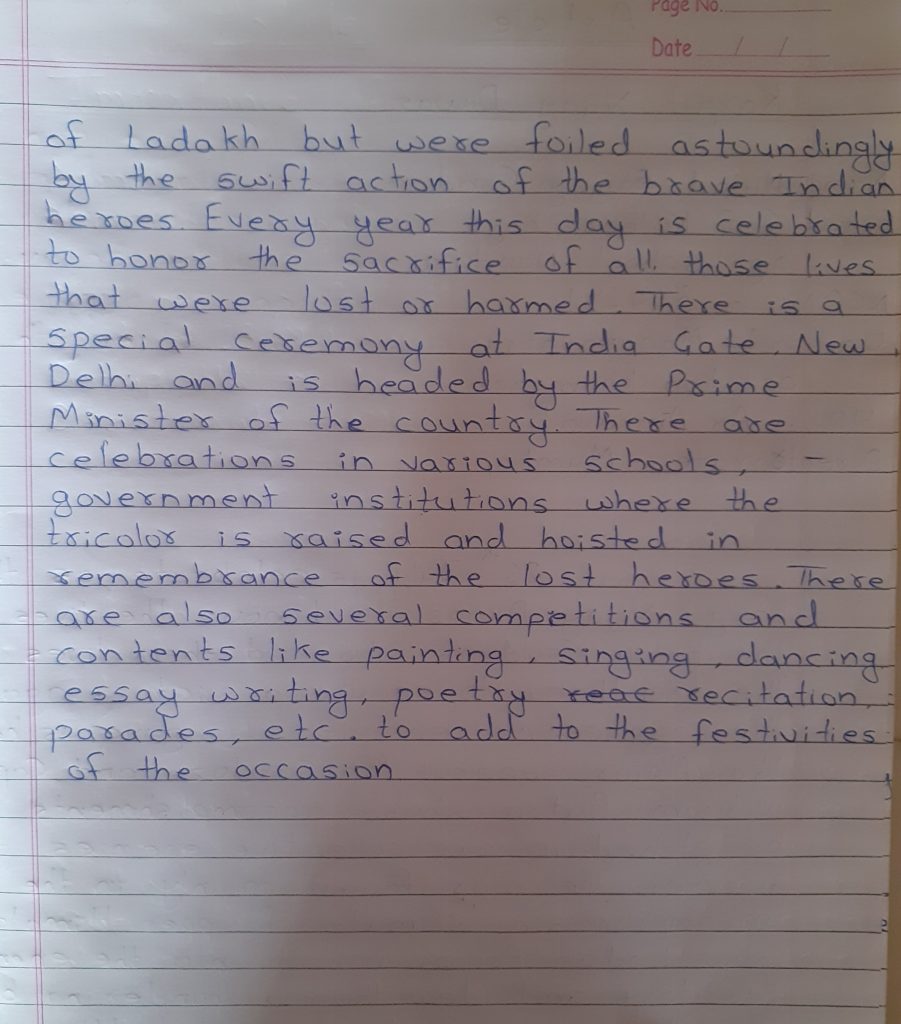 Page No.
Date / /
of Ladakh but were foiled astoundingly
by the swift action of the brave Indian
heroes. Every year this day is celebrated
to honor the sacrifice of all those lives
that were lost or harmed. There is a
special ceremony at India Gate, New
Delhi and is headed by the Prime
Minister of the country. There are
celebrations in various schools, -
government institutions where the
tricolor is raised and hoisted in
remembrance of the lost heroes. There
are also several competitions and
contents like painting, singing, dancing
essay writing, poetry reac recitation,
parades, etc. to add to the festivities
of the occasion